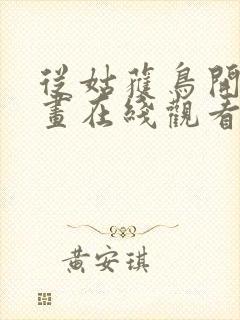 從姑蓷鳥開
畫在綫觀看
黃安琪